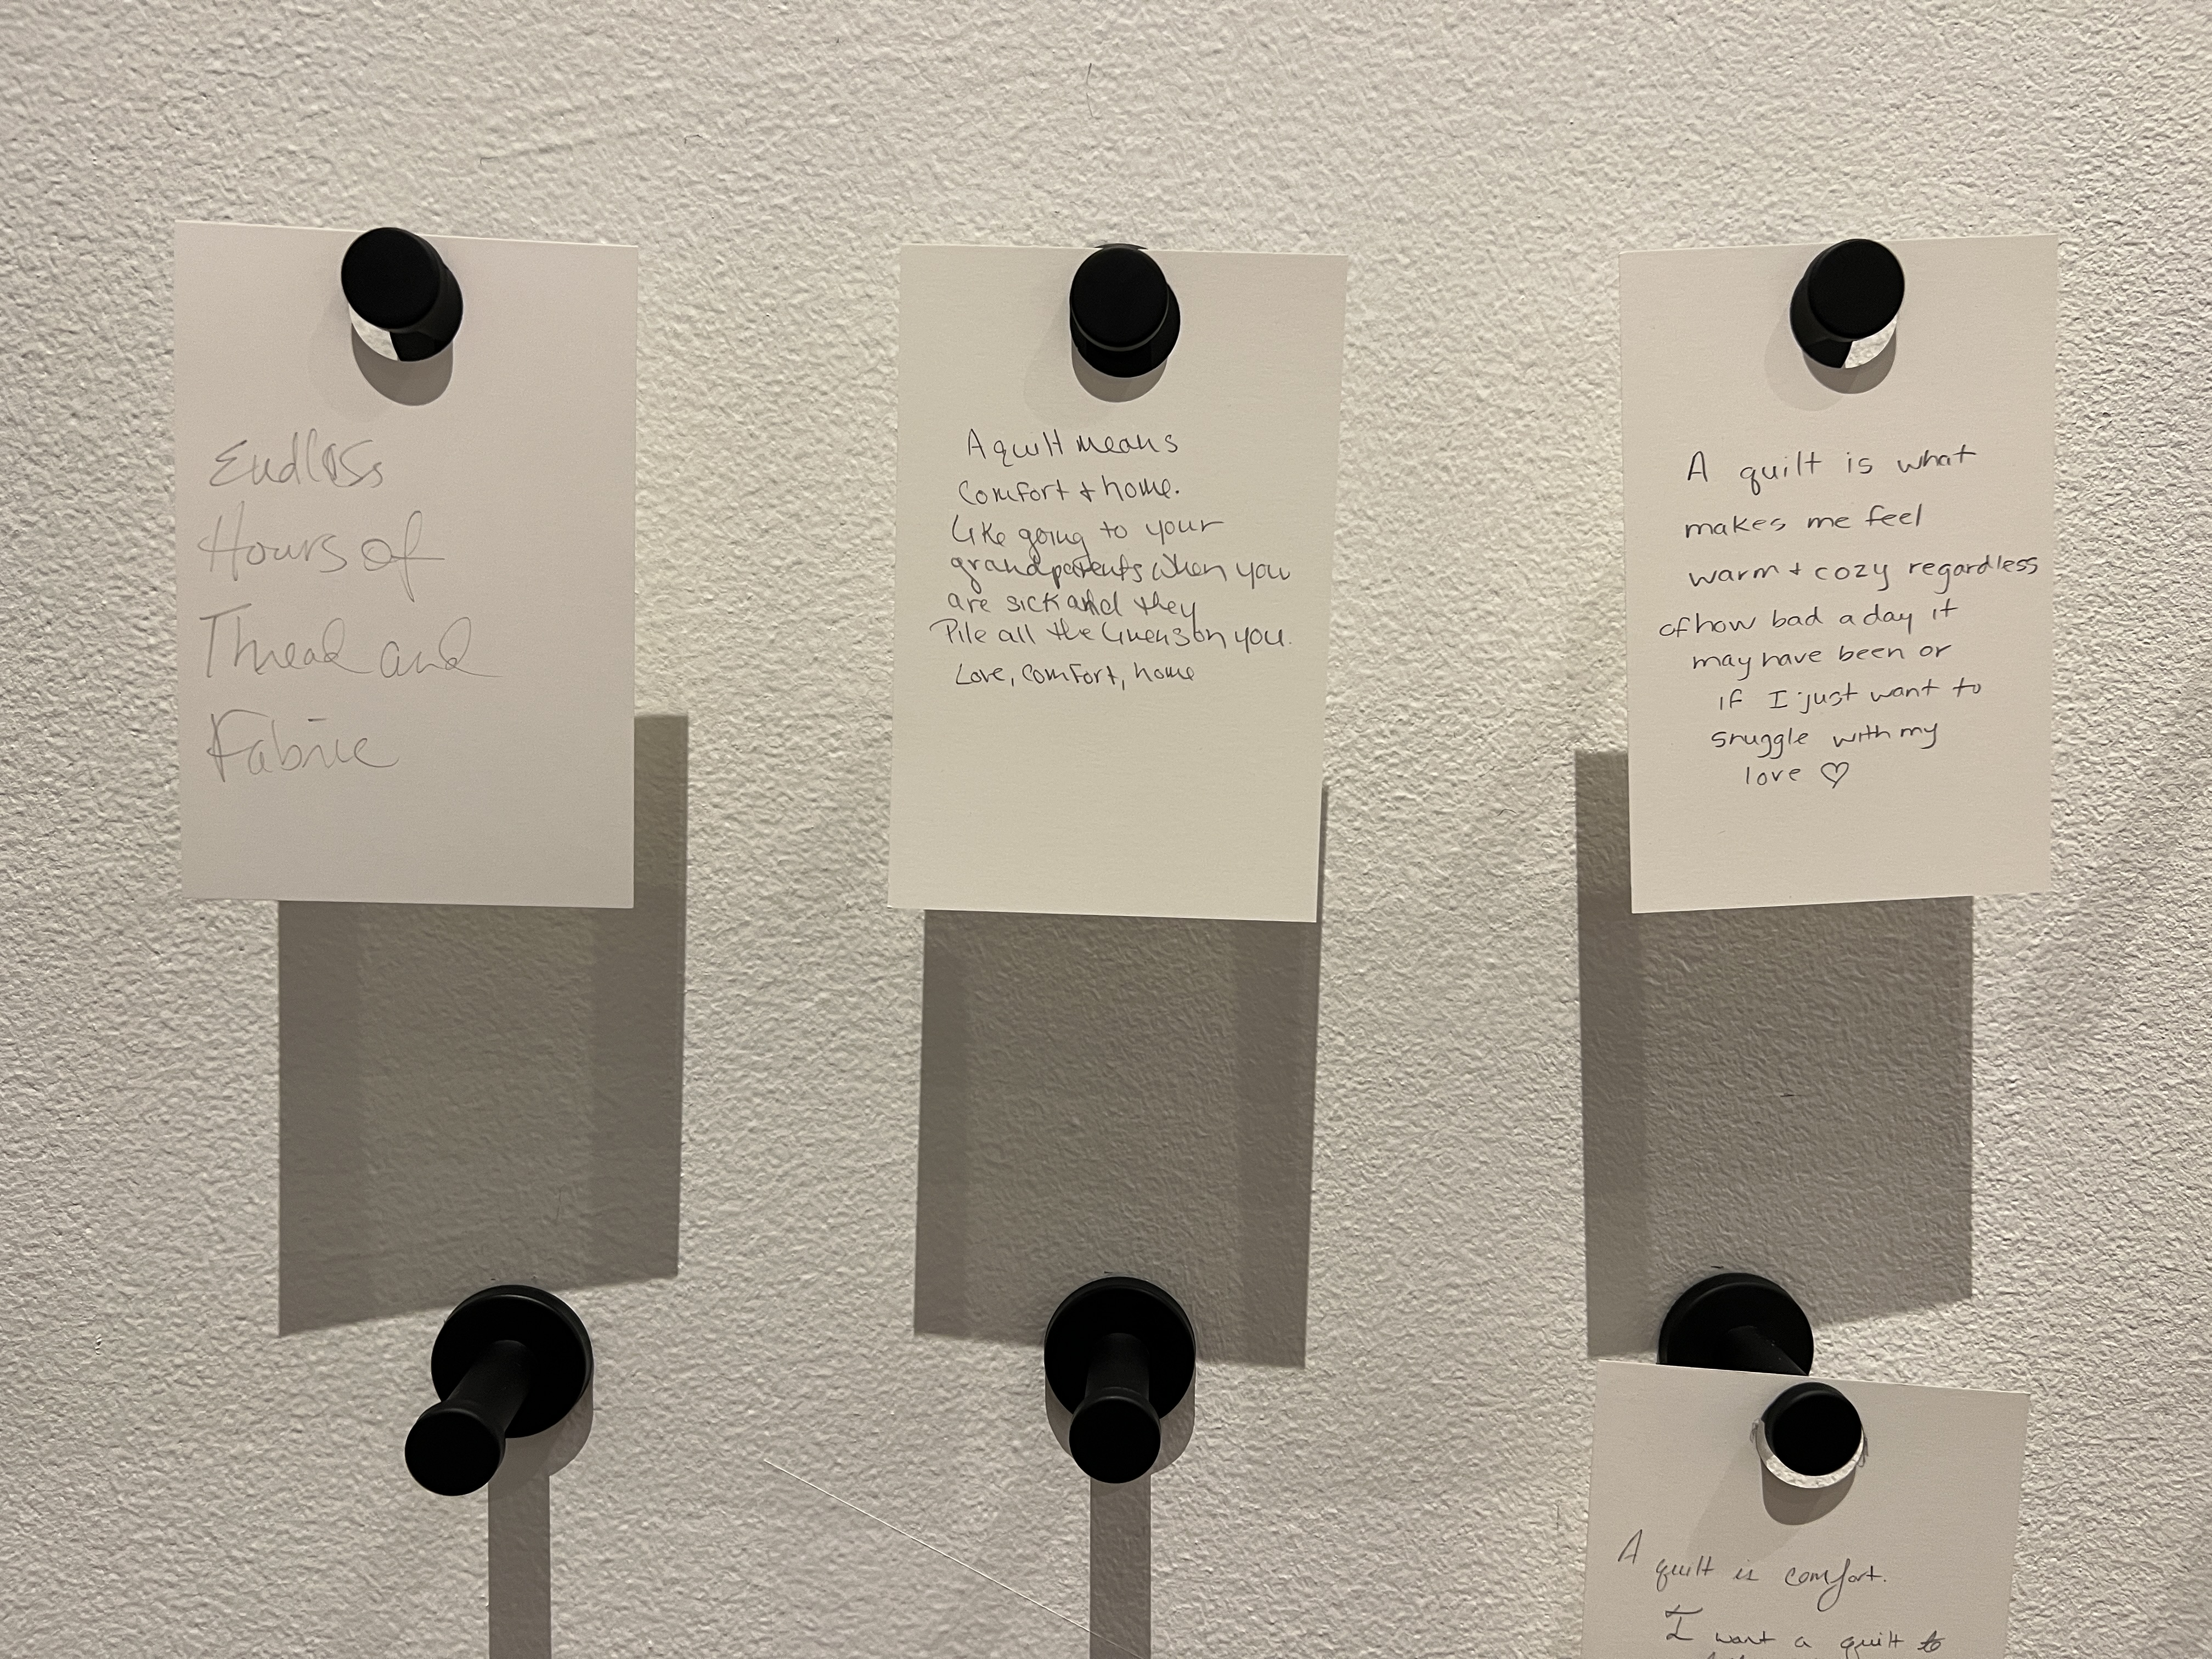 Endless
Hours of
Thread and
Fabric
A quilt means
comfort + home.
Like going to your
grandparents when you
are sick and they
Pile all the linens on you.
Love, comfort, home
A quilt is what
makes me feel
warm + cozy regardless
of how bad a day it
may have been or
if I just want to
snuggle with my
love ♡
A quilt is comfort.
I want a quilt to